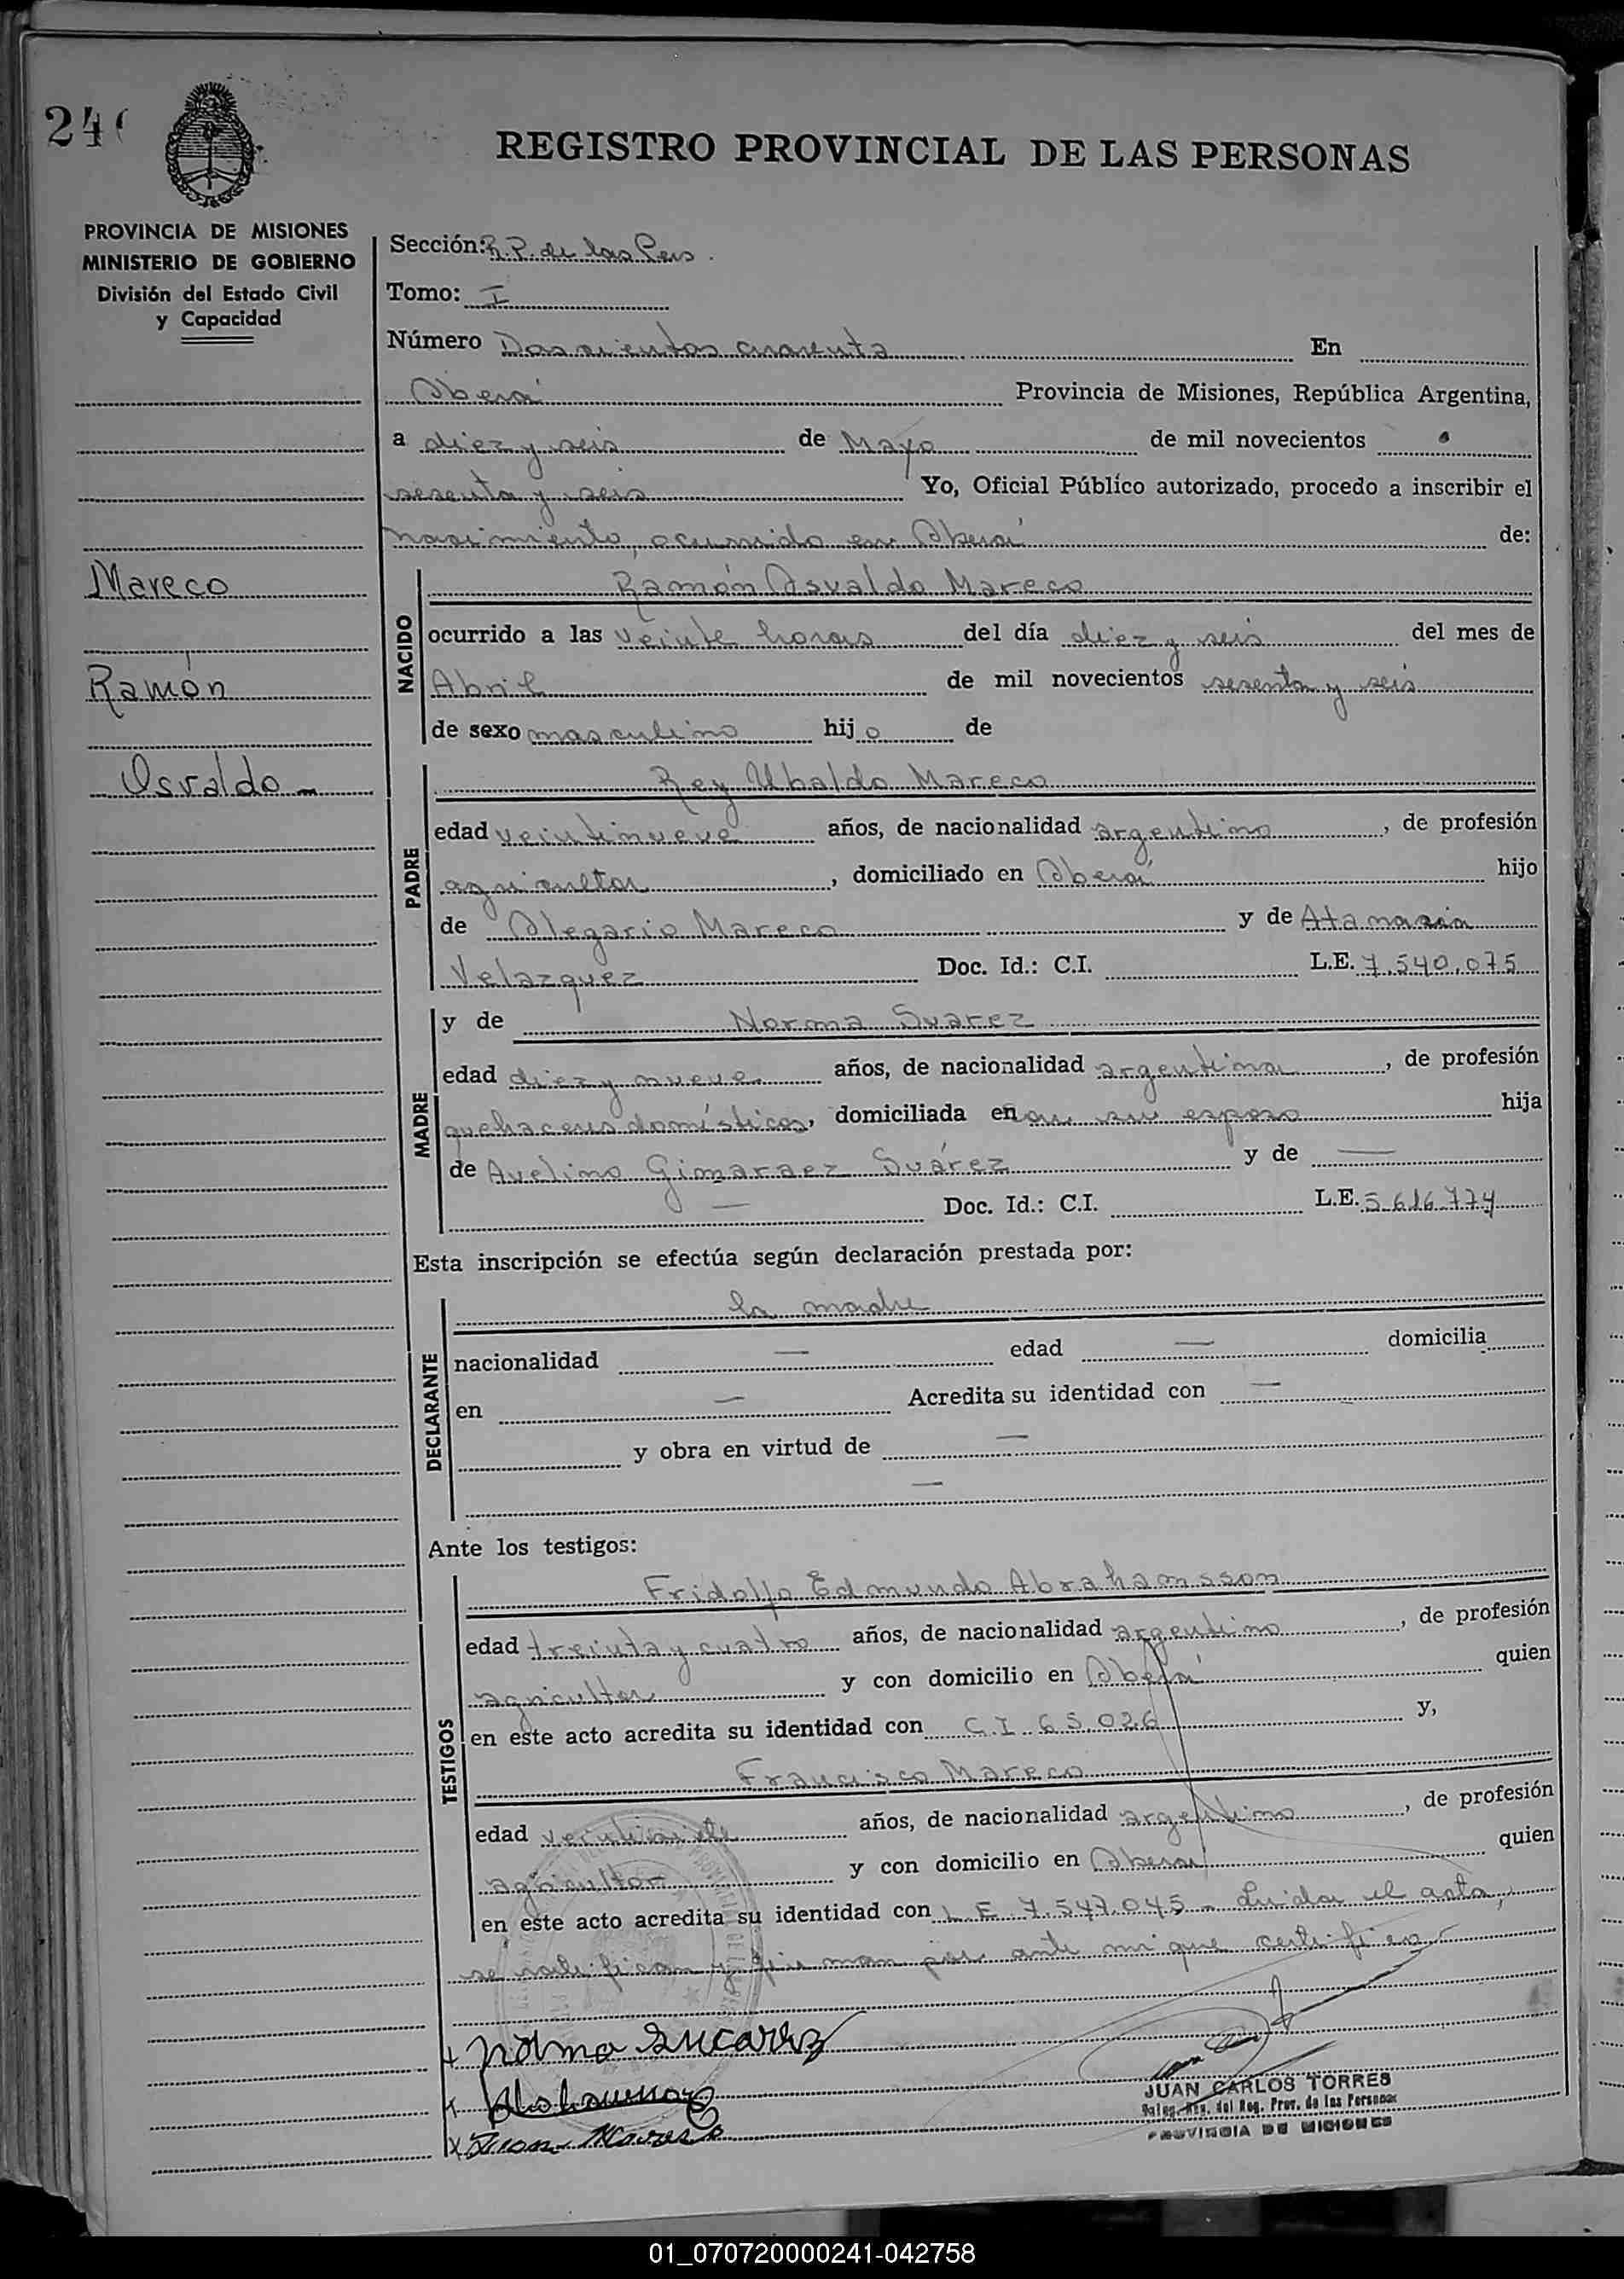 240
REGISTRO PROVINCIAL DE LAS PERSONAS
PROVINCIA DE MISIONES
MINISTERIO DE GOBIERNO
División del Estado Civil
y Capacidad
Mareco
Ramón
Osvaldo
Sección: R. P. de las Pers.
Tomo: I
Número Doscientos cuarenta En
Oberá Provincia de Misiones, República Argentina,
a diez y seis de Mayo de mil novecientos
sesenta y seis Yo, Oficial Público autorizado, procedo a inscribir el
nacimiento, ocurrido en Oberá de:
NACIDO
Ramón Osvaldo Mareco
ocurrido a las veinte horas del día diez y seis del mes de
Abril de mil novecientos sesenta y seis
de sexo masculino hijo de
PADRE
Rey Ubaldo Mareco
edad veintinueve años, de nacionalidad argentino, de profesión
agricultor, domiciliado en Oberá hijo
de Olegario Mareco y de Atanasia
Velazquez Doc. Id.: C.I. L.E. 7.540.075
MADRE
y de Norma Suarez
edad diez y nueve años, de nacionalidad argentina, de profesión
quehaceres domésticos, domiciliada en su esposo hija
de Avelino Gimaraez Suárez y de —
— Doc. Id.: C.I. L.E. 5.616.774
Esta inscripción se efectúa según declaración prestada por:
DECLARANTE
la madre
nacionalidad — edad — domicilia
en — Acredita su identidad con —
y obra en virtud de —
—
Ante los testigos:
TESTIGOS
Fridolfo Edmundo Abrahamsson
edad treinta y cuatro años, de nacionalidad argentino, de profesión
agricultor y con domicilio en Oberá quien
en este acto acredita su identidad con C.I. 65.026 y,
Francisco Mareco
edad veintisiete años, de nacionalidad argentino, de profesión
agricultor y con domicilio en Oberá quien
en este acto acredita su identidad con L E 7.547.045 - Leida el acta,
se ratifican y firman por ante mi que certifico
x Norma Sucarez
x
x Mareco
JUAN CARLOS TORRES
del Reg. Prov. de las Personas
PROVINCIA DE MISIONES
01_070720000241-042758